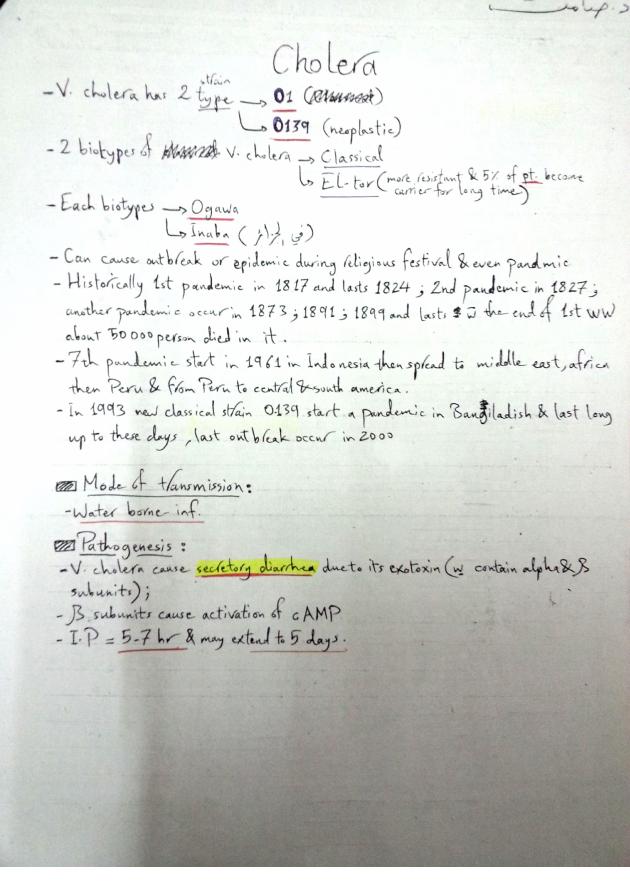 Cholera
- V. cholera has 2 type strain → O1
↳ O139 (neoplastic)
- 2 biotypes of V. cholera → Classical
↳ EL-tor (more resistant & 5% of pt. become carrier for long time)
- Each biotypes → Ogawa
↳ Inaba (في
- Can cause outbreak or epidemic during religious festival & even pandmic
- Historically 1st pandemic in 1817 and lasts 1824 ; 2nd pandemic in 1827 ;
another pandemic occur in 1873 ; 1891 ; 1899 and lasts the end of 1st WW
about 50000 person died in it.
- 7th pandemic start in 1961 in Indonesia then spread to middle east, africa
then Peru & from Peru to central & south america.
- In 1993 new classical strain O139 start a pandemic in Bangiladish & last long
up to these days , last outbreak occur in 2000
Mode of transmission:
- Water borne inf.
Pathogenesis :
- V. cholera cause secretory diarrhea due to its exotoxin (w contain alpha & β
subunits) ;
- β subunits cause activation of cAMP
- I.P = 5-7 hr & may extend to 5 days.